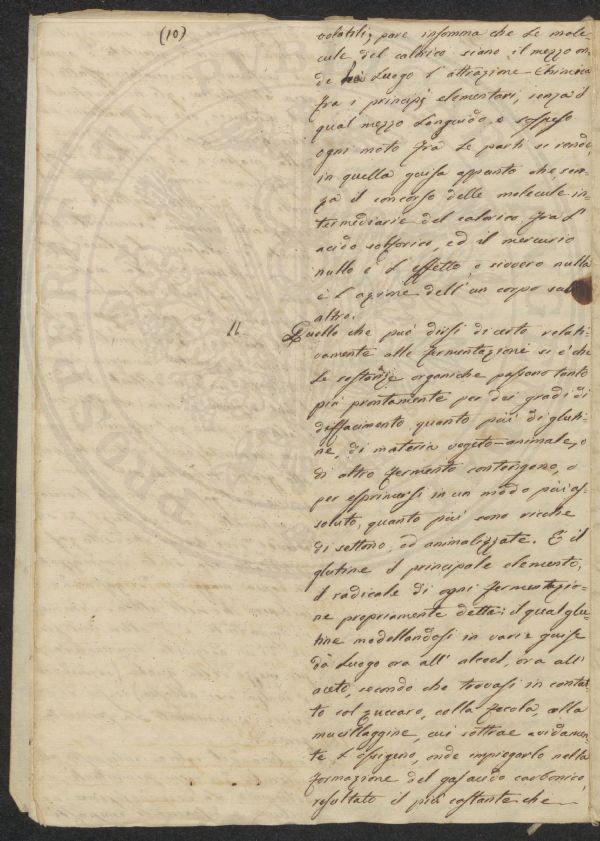 (10)
volatili; pare insomma che le mole-
cule del calorico siano il mezzo on-
de ha luogo l'attrazione Chimica
fra i principj elementari, senza il
qual mezzo languido, e sospeso
ogni moto fra le parti si rende,
in quella guisa appunto che sen-
za il concorso delle molecule in-
termediarie del calorico, fra l'
acido solforico, ed il mercurio
nullo è l'effetto, o sivvero nulla
è l'azione dell'un corpo sull'
altro.
11. Quello che può dirsi di certo relati-
vamente alle fermentazioni si è che
le sostanze organiche passano tanto
più prontamente per dei gradi di
disfacimento quanto più di gluti-
ne, di materia vegeto-animale, o
di altro fermento contengono, o
per esprimersi in un modo più as-
soluto, quanto più sono ricche
di settono, ed animalizzate. È il
glutine il principale elemento,
il radicale di ogni fermentazio-
ne propriamente detta; il qual glu-
tine modellandosi in varie guise
dà luogo ora all'alcool, ora all'
aceto, secondo che trovasi in contat-
to col zuccaro, colla fecola, colla
mucillaggine, cui sottrae avidamen-
te l'ossigeno, onde impiegarlo nella
formazione del gas acido carbonico,
resultato il più costante che